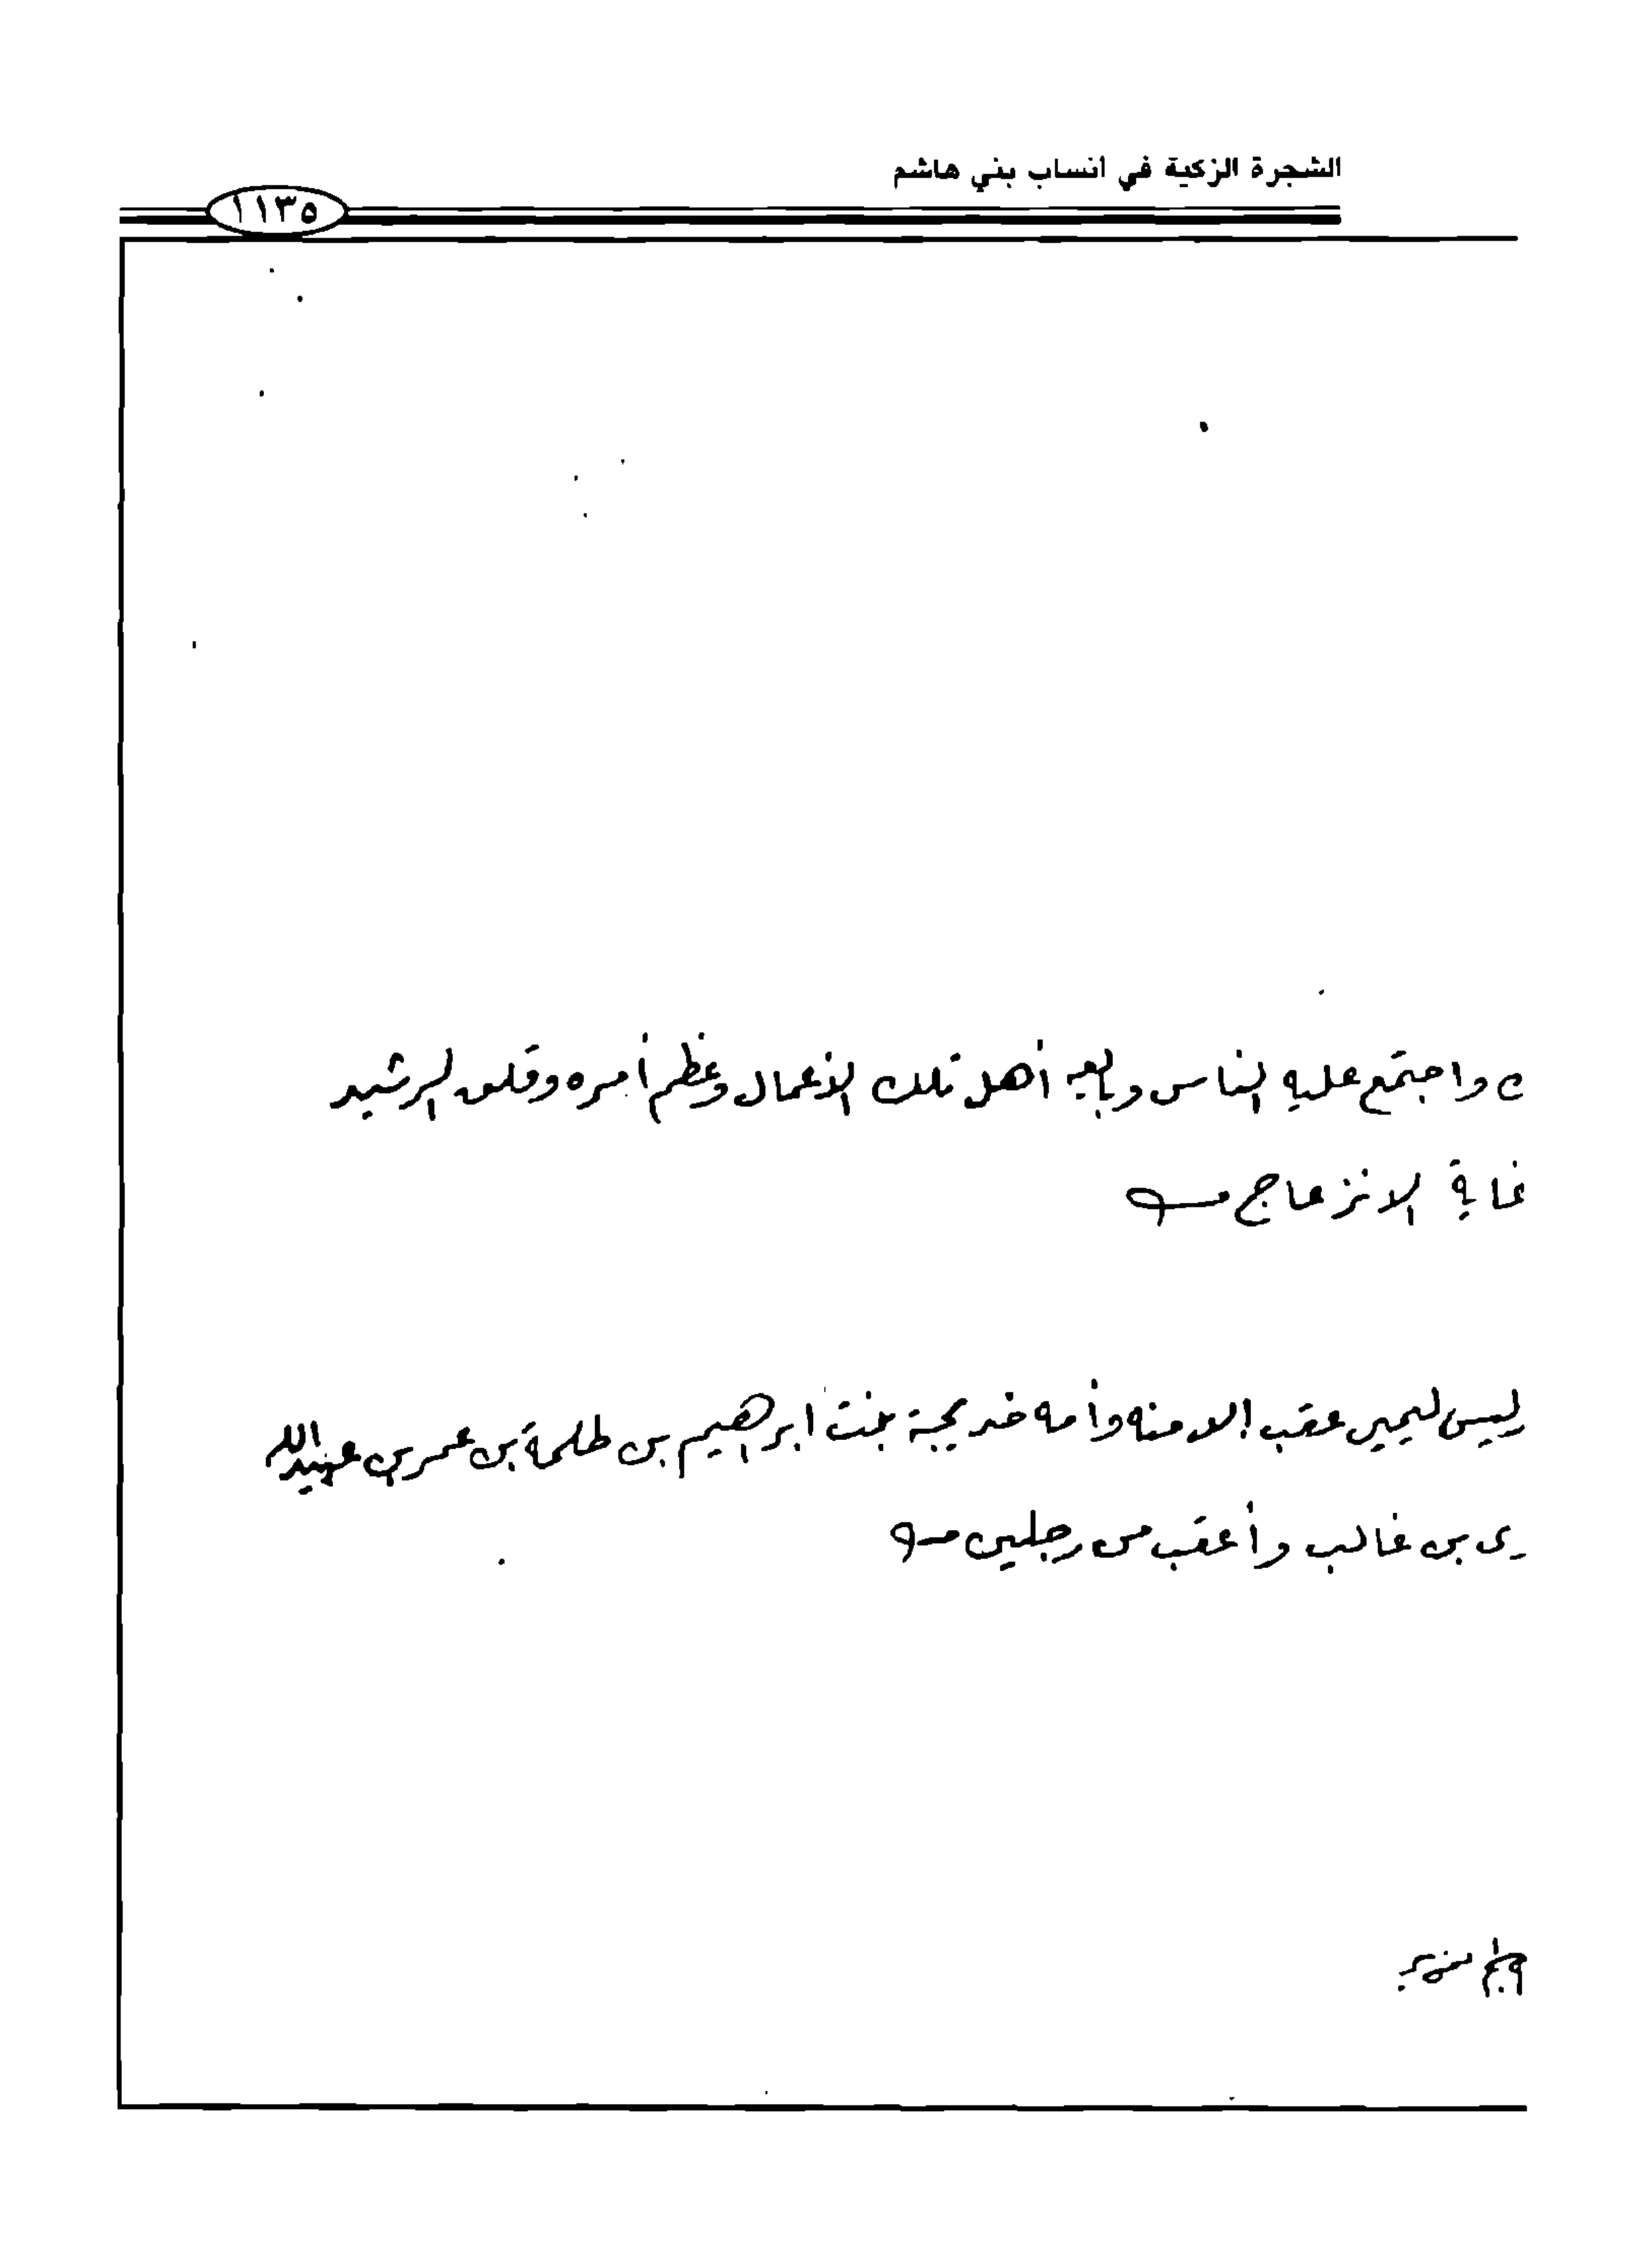 الشجرة الزكية في انساب بني هاشم
١١٣٥
ي واجتمع عليه الناس وبايعه أهل تلك الأعمال وعظم أمره وقلق الرشيد
غاية الانزعاج
ليس ليحيى عقب الا منه وأمه خديجة بنت ابرهيم بن طلحة بن عمر بن عبيدالله
ى بن غالب وأعقب من رجلين